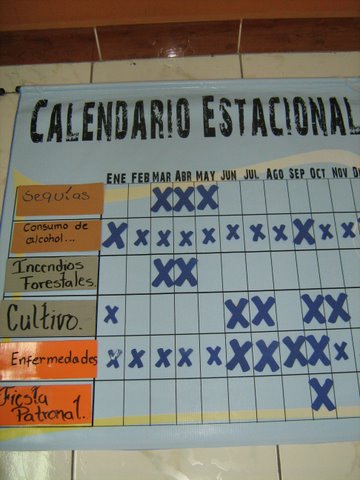 CALENDARIO ESTACIONAL
ENE FEB MAR ABR MAY JUN JUL AGO SEP OCT NOV
Sequías XXX
Consumo de
alcohol... X X X X X X X X X X X
Incendios
Forestales. XX
Cultivo. X XX XX
Enfermedades X X X X X X X X X X X
Fiesta
Patronal. X